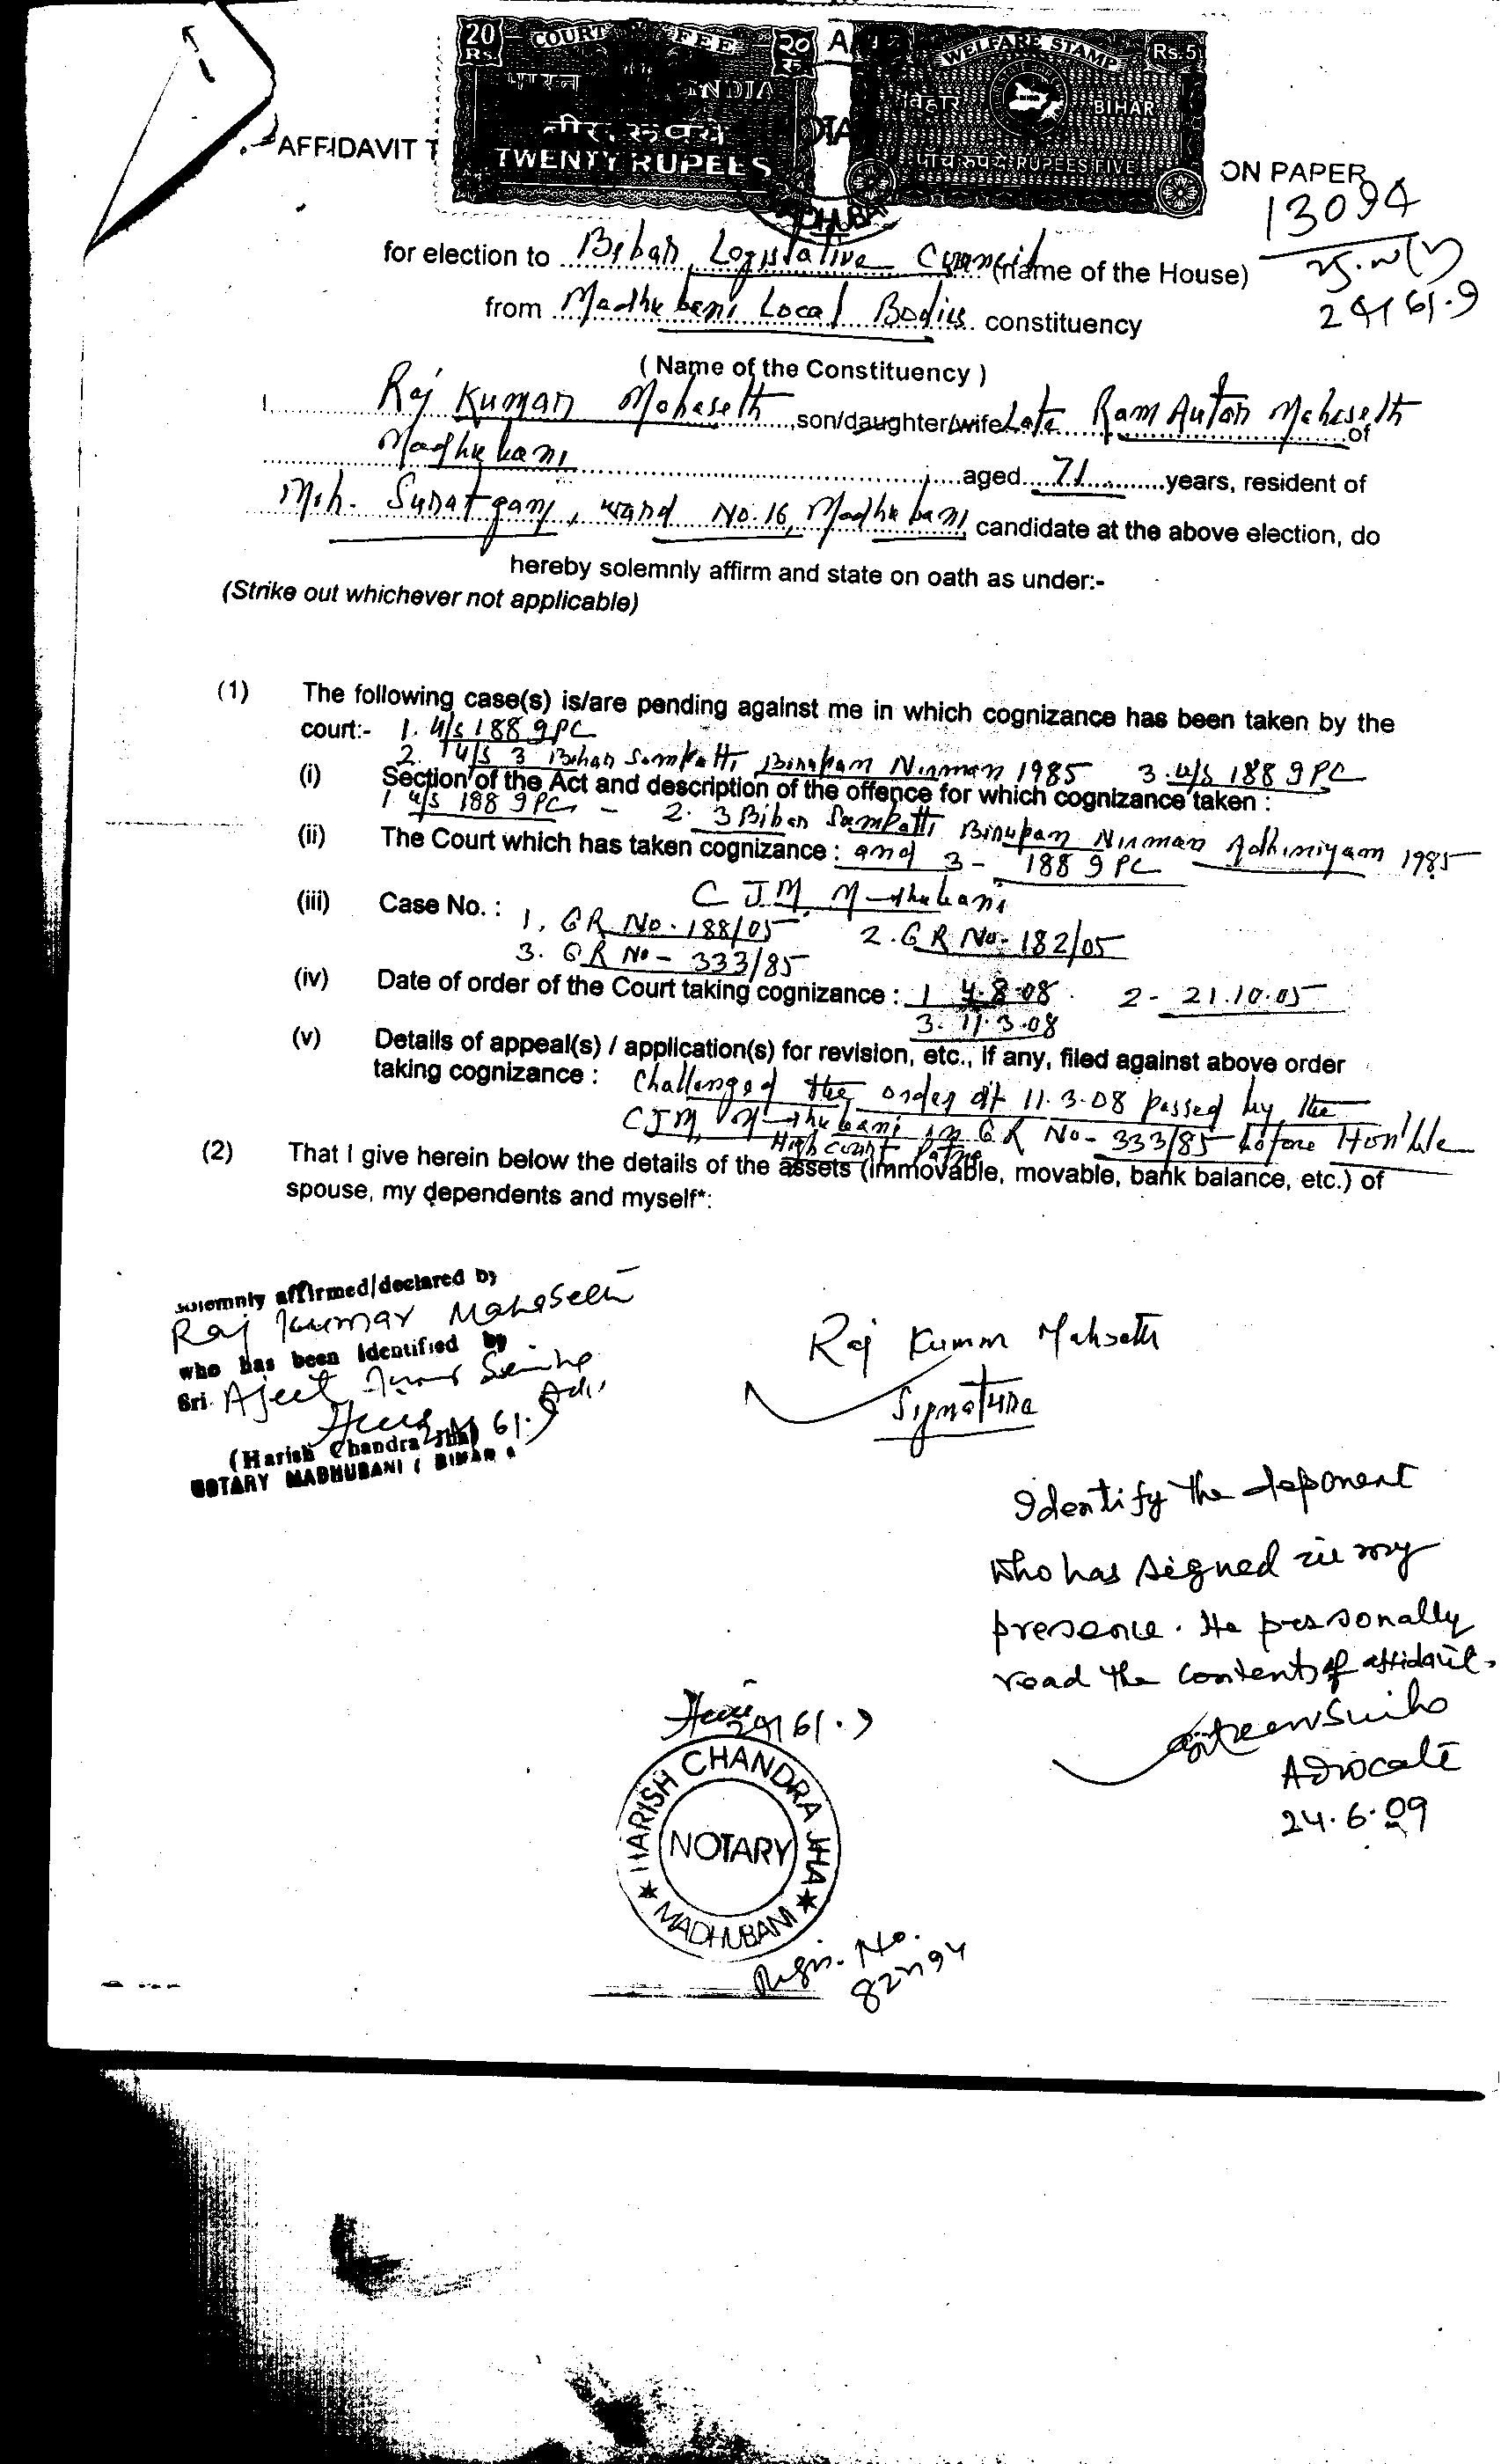 20 COURT FEE २०
RS.
भारत INDIA
बीस रूपये
TWENTY RUPEES
WELFARE STAMP Rs.5
बिहार BIHAR
पाँच रुपये RUPEES FIVE
AFFIDAVIT T
ON PAPER
13094
24/6/.9
for election to Bihar Legislative Council (name of the House)
from Madhubani Local Bodies constituency
( Name of the Constituency )
I, Raj Kumar Mahaseth ,son/daughter/wife Late Ram Autar Mahaseth of
Madhubani aged 71 years, resident of
Moh. Suratganj, ward No. 16, Madhubani candidate at the above election, do
hereby solemnly affirm and state on oath as under:-
(Strike out whichever not applicable)
(1) The following case(s) is/are pending against me in which cognizance has been taken by the
court:- 1. u/s 188 IPC
2. u/s 3 Bihar Sampatti Birupan Nirman 1985 3. u/s 188 IPC
(i) Section of the Act and description of the offence for which cognizance taken :
1 u/s 188 IPC - 2. 3 Bihar Sampatti Birupan Nirman Adhiniyam 1985
(ii) The Court which has taken cognizance : and 3 - 188 IPC
C J M, Madhubani
(iii) Case No. : 1. GR No. 188/05 2. GR No- 182/05
3. GR No - 333/85
(iv) Date of order of the Court taking cognizance : 1 4.8.08. 2 - 21.10.05
3. 11.3.08
(v) Details of appeal(s) / application(s) for revision, etc., if any, filed against above order
taking cognizance : Challenged the order dt 11.3.08 passed by the
CJM, Madhubani in GR No - 333/85 before Hon'ble
High court Patna
(2) That I give herein below the details of the assets (immovable, movable, bank balance, etc.) of
spouse, my dependents and myself*:
Solemnly affirmed/declared by
Raj Kumar Mahaseth
who has been identified by
Sri. Ajeet Kumar Sinha
Adv.
(Harish Chandra Jha)
NOTARY MADHUBANI ( BIHAR )
Raj Kumar Mahseth
Signature
Identify the deponent
who has signed in my
presence. He personally
read the contents of affidavit.
Advocate
24.6.09
24/6/.9
HARISH CHANDRA JHA
NOTARY
MADHUBANI
Regn. No.
827/94